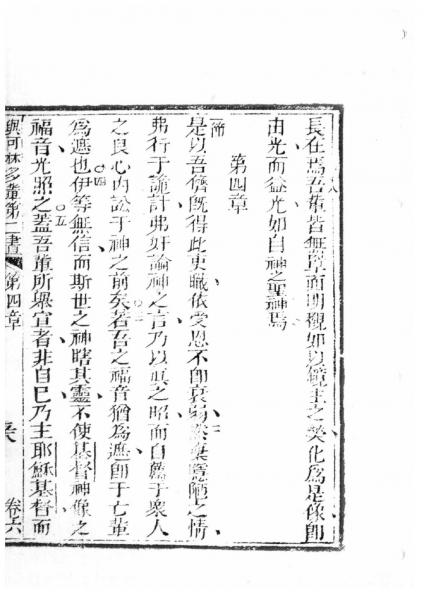 長在焉吾輩皆無蔽面而明視如以鏡主之榮化為是像即
由光而益光如自神之聖神焉
第四章
是以吾儕既得此吏職依受恩不即衰弱
棄隱陋之情
弗行于詭計弗奸論神之言乃以真之昭而自薦于衆人
之良心內訟于神之前矣若吾之福音猶為遮即于亡輩
為遮也伊等無信而斯世之神瞎其靈不使基督神像之
福音光照之蓋吾輩所舉宣者非自己乃主耶穌基督而
與可林多輩第二書 第四章 卷六